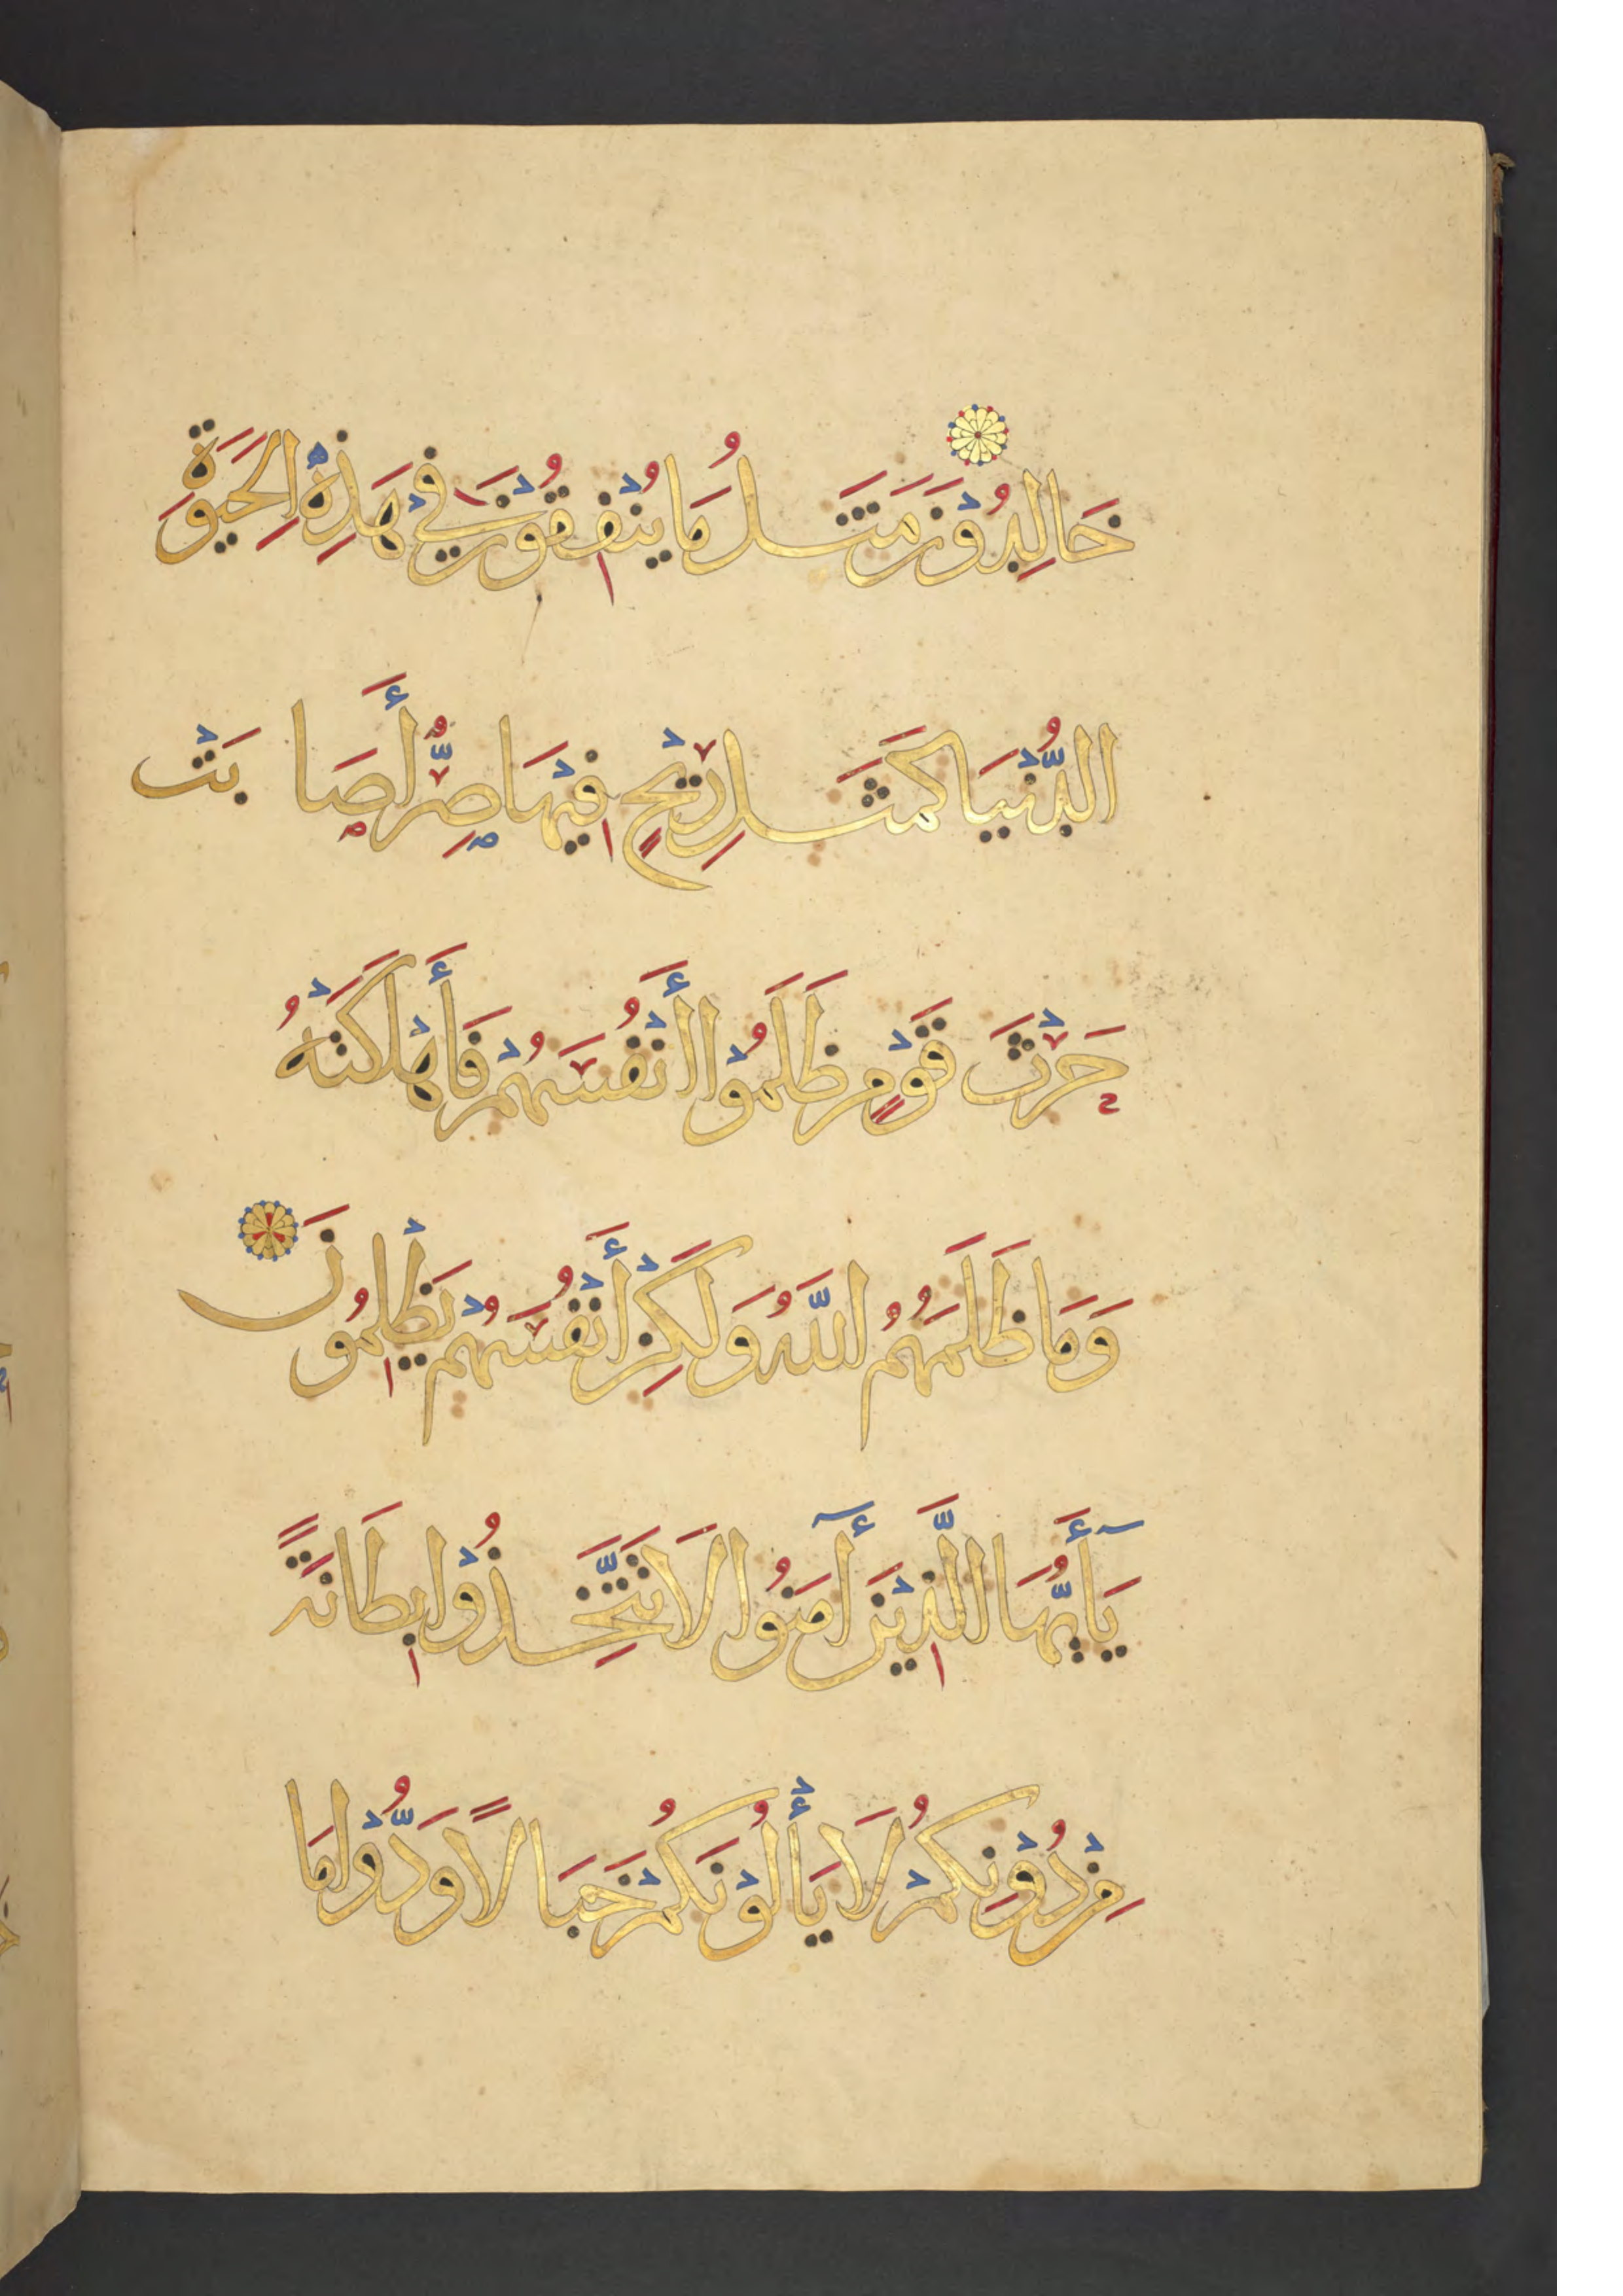 خَالِدُوْنَ مَثَلُ مَا يُنْفِقُوْنَ فِيْ هَذِهِ الْحَيَوةِ
الدُّنْيَا كَمَثَلِ رِيْحٍ فِيْهَا صِرٌّ أَصَابَتْ
حَرْثَ قَوْمٍ ظَلَمُوْا أَنْفُسَهُمْ فَأَهْلَكَتْهُ
وَمَا ظَلَمَهُمُ اللَّهُ وَلَكِنْ أَنْفُسَهُمْ يَظْلِمُونَ
يَآأَيُّهَا الَّذِيْنَ آمَنُوا لَا تَتَّخِذُوْا بِطَانَةً
مِنْ دُوْنِكُمْ لَا يَأْلُوْنَكُمْ خَبَالًا وَدُّوْا مَا